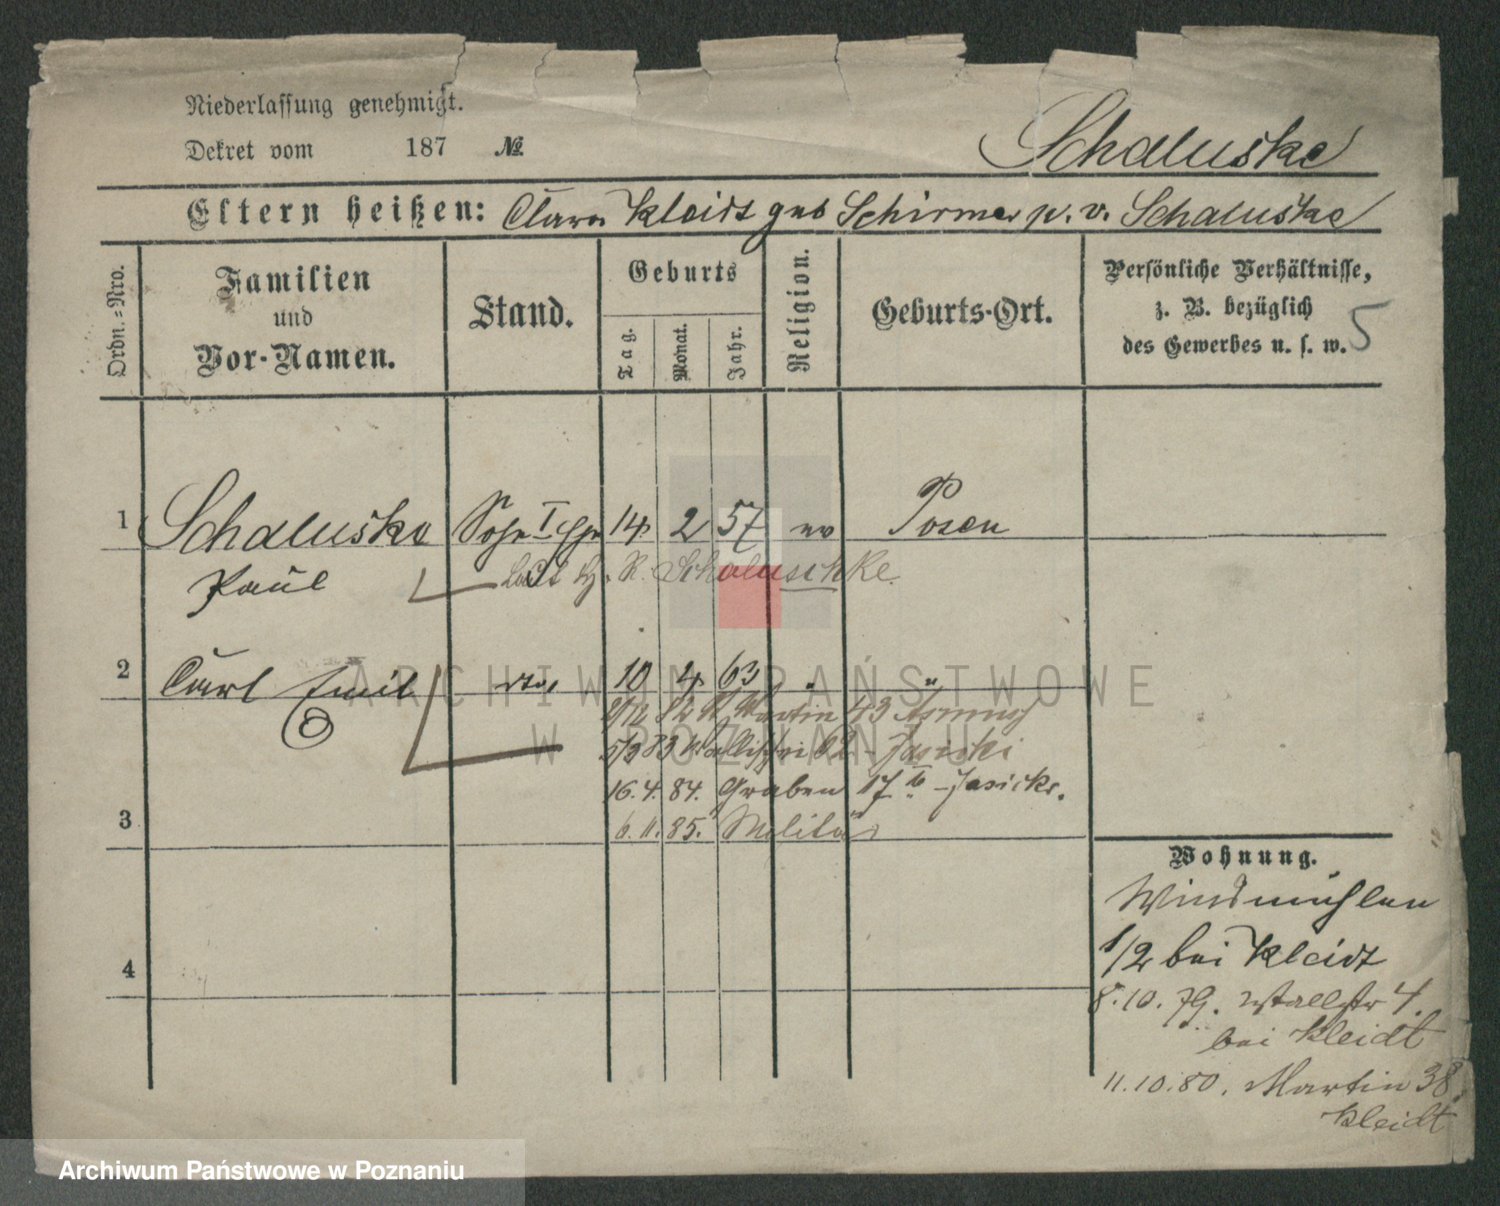 Niederlassung genehmigt.
Dekret vom 187 №
Schaluske
Eltern heißen: Clara Kleidt geb Schirmer p. v. Schaluske
Ordn.=Nro.
Familien und Vor-Namen.
Stand.
Geburts
Tag.
Monat.
Jahr.
Religion.
Geburts-Ort.
Persönliche Verhältnisse,
z. B. bezüglich
des Gewerbes u. s. w.
5
1 Schaluske 14 2 57 ev Posen
Paul R. Schaluschke.
2 Carl Emil dto, 10 4 63 " "
82 Martin 43
5/3 83 Wallischei 62 - Jasicki
16. 4. 84. Graben 17 - Jasicki.
3 6. 11. 85. Militär
4
Wohnung.
Windmühlen
1/2 bei Kleidt
8. 10. 79. Wallstr 4.
bei Kleidt
11. 10. 80. Martin 38.
Kleidt
ARCHIWUM PAŃSTWOWE
W POZNANIU
Archiwum Państwowe w Poznaniu